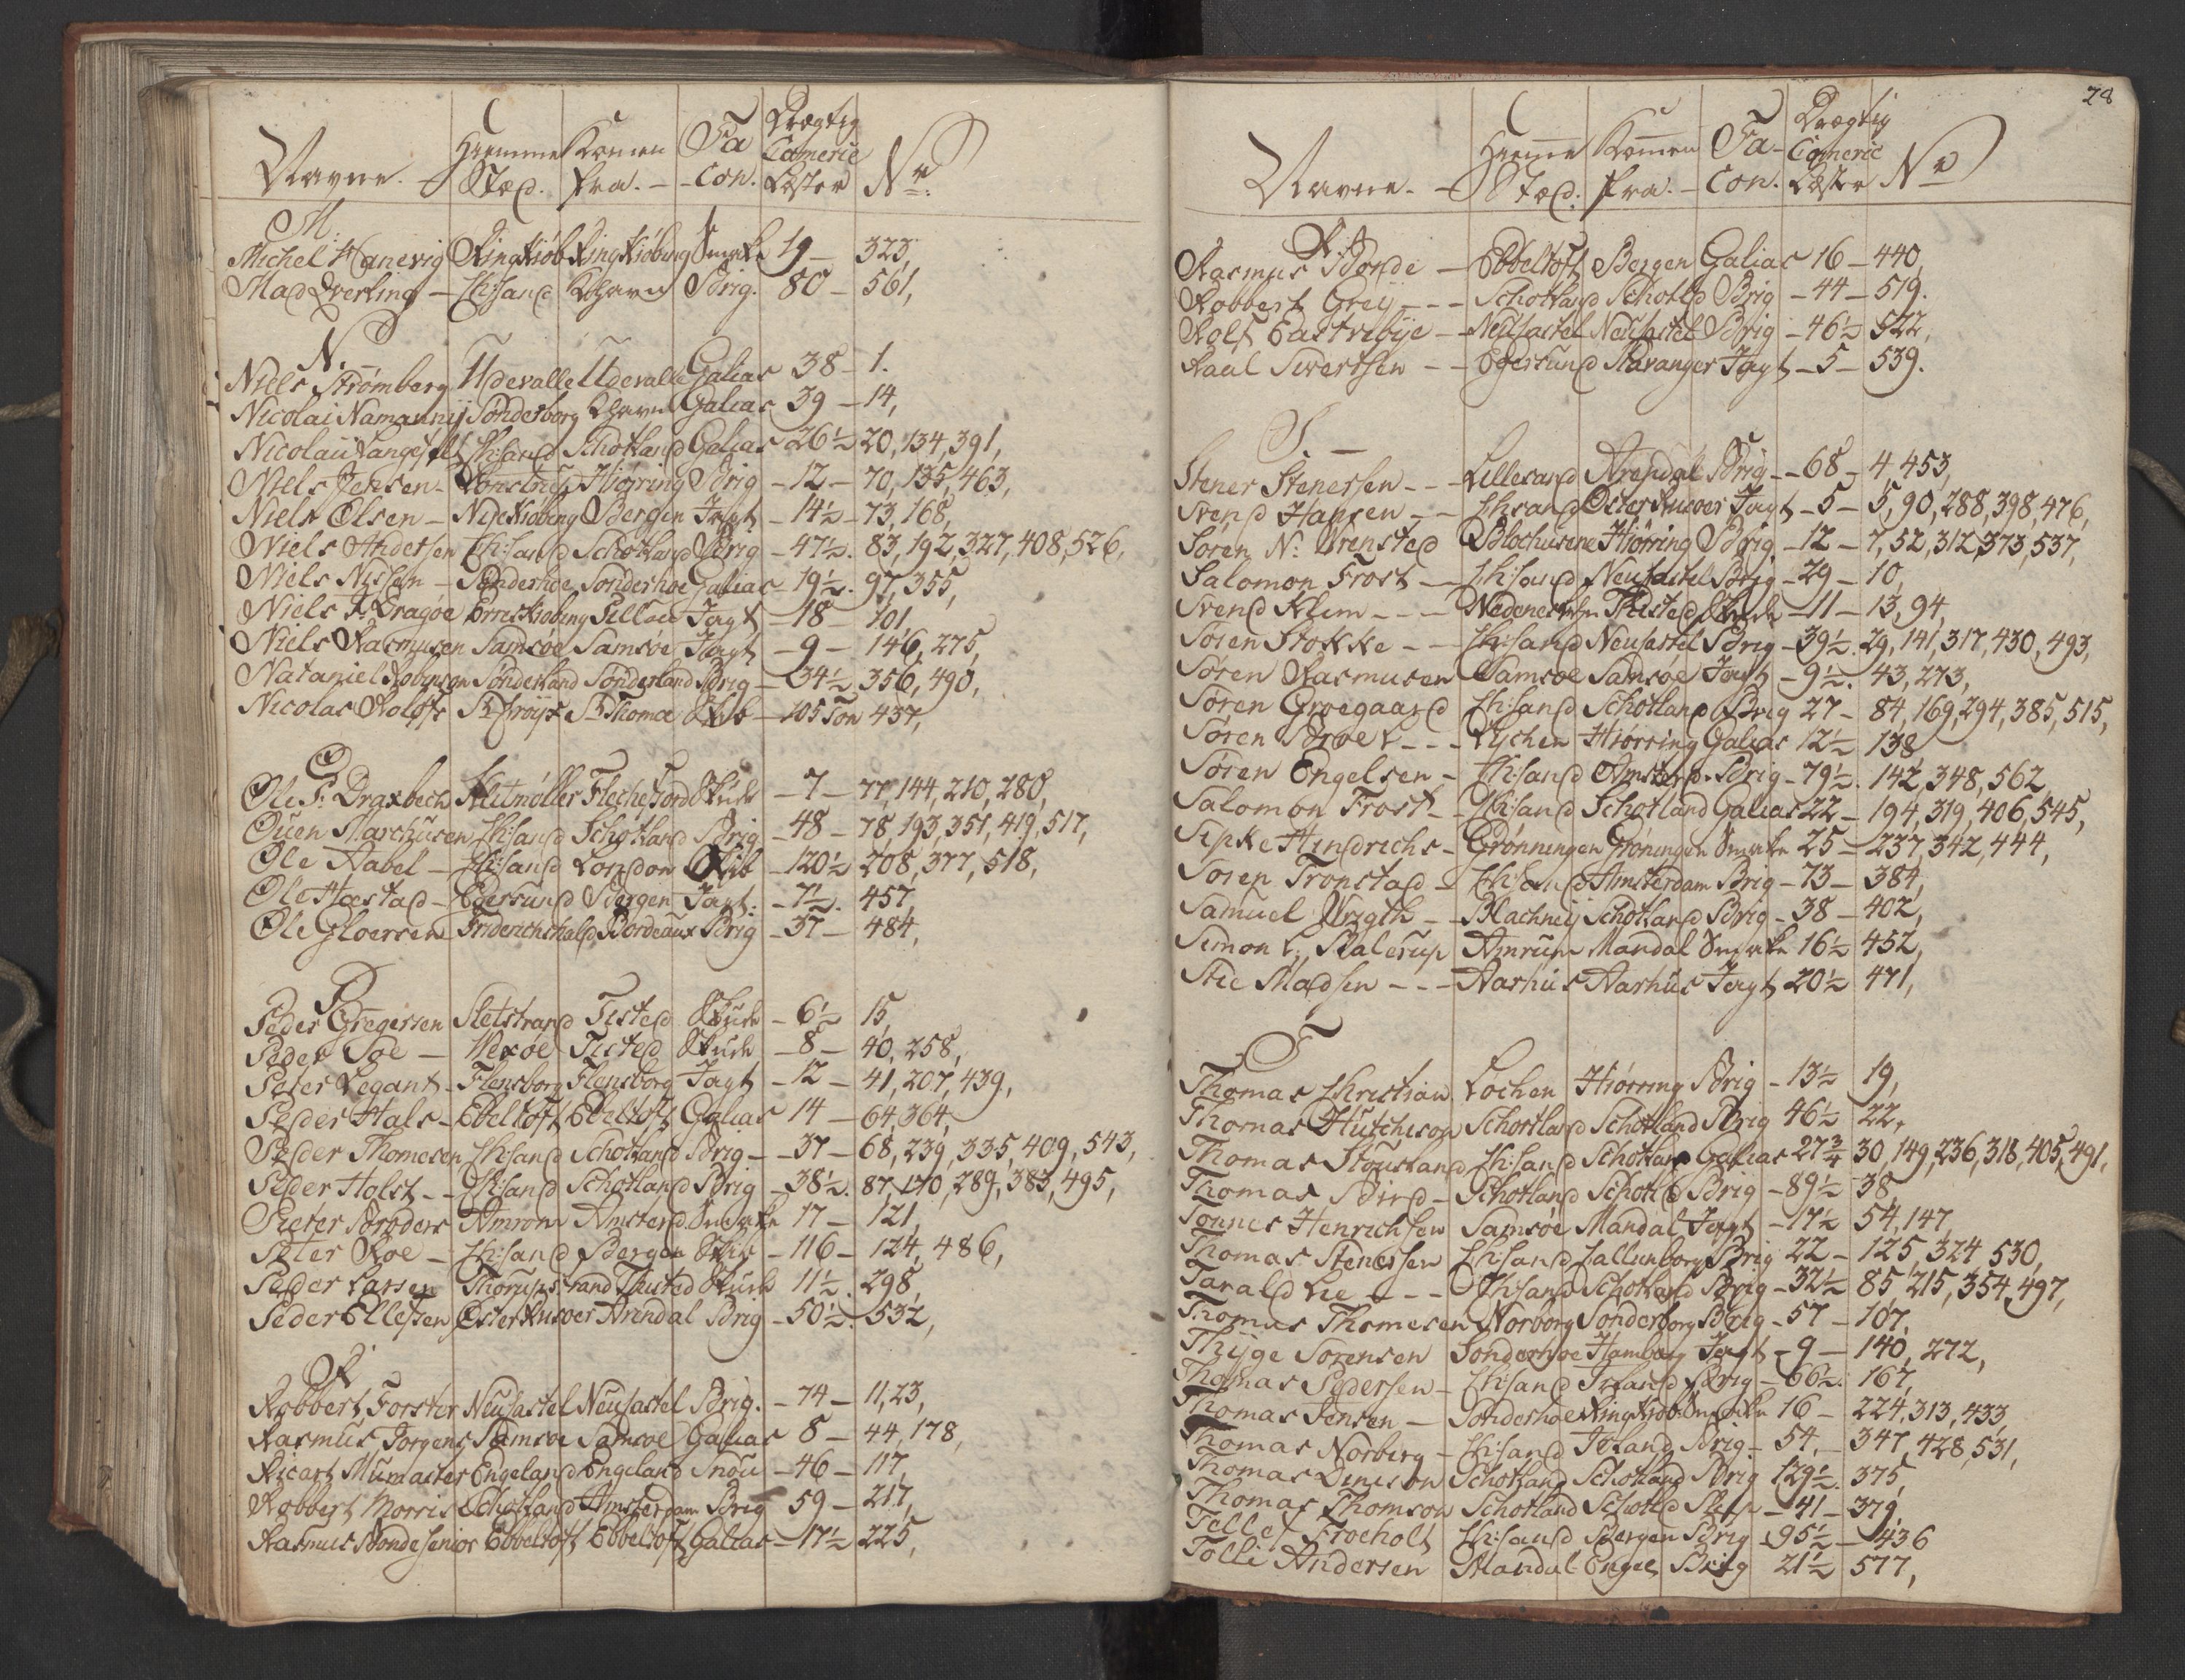 Navne. Hiemme Stæd. Komen fra. Fa Con. Drægtig Comerie Læster No.
M.
Michel Hanevig Ringkiøb Ringkiøbing Smakke 19 323,
Mad Qverling Ch:sand Khavn Brig. 80 561,
N.
Niels Strømberg Udevalle Udevalle Galias 38 1.
Nicolai Namanny Sønderborg Khavn Galias 39 14,
Nicolai Langefelt Ch:sand Schotland Galias 26½ 20, 134, 391,
Niels Jensen Lønstrup Hiøring Brig 12 70, 135, 463,
Niels Olsen Nidekiøbing Bergen Jagt 14½ 73, 168,
Niels Andersen Ch:sand Schotland Brig 47½ 83, 192, 327, 408, 526,
Niels Nissen Sønderhoe Sønderhoe Galias 19½ 97, 355,
Niels J: Dragøe Erreskiøbing Pillau Jagt 18 101
Niels Rasmusen Samsøe Samsøe Jagt 9 146, 275,
Nataniel Robinson Sønderland Sønderland Brig 34½ 356, 490,
Nicolas Roloff St Croix St Thoma Skib 105 Ton 437,
O
Ole P: Draxbech Kletmøller Flechefiord Skude 7 77, 144, 210, 280,
Ouen Marchusen Ch:sand Schotland Brig 48 78, 193, 351, 419, 517,
Ole Aabel Ch:sand London Skib 120½ 208, 377, 518,
Ole Hæstad Egersund Bergen Jagt: 7½ 457,
Ole Gloersen Friderichshald Bordeaux Brig 37 484,
P
Peder Gregersen Sletstrand Tisted Skude 6½ 15,
Peder Soe Wexøe Tisted Skude 8 40, 258,
Peter Legant Flensborg Flensborg Jagt 12 41, 207, 439,
Peder Hals Ebeltoft Ebeltoft Galias 14 64, 364,
Peder Thomesen Ch:sand Schotland Brig 37 68, 239, 335, 409, 543,
Peder Holst Ch:sand Schotland Brig 38½ 87, 170, 289, 383, 495,
Pieter Broders Amrom Amsterd Smakke 17 121,
Peter Roe Ch:sand Bergen Skib 116 124, 486,
Peder Larsen Thorupstrand Thisted Skude 11½ 298,
Peder Ellefsen Østerriisøer Arendal Brig 50½ 532,
R
Robbert Forster Neucastel Neucastel Brig. 74 11, 23,
Rasmus Jørgens Samsøe Samsøe Galias 8 44, 178,
Ricart Mumaster Engeland Engeland Snou 46 117,
Robbert Morris Schotland Amsterdam Brig 59 217,
Rasmus Bonde senior Ebbeltoft Ebbeltoft Galias 17½ 225,
28
Navne. Hieme Stæd. Komen fra. Fa Con. Drægtig Comerie Læster No
R
Rasmus Bonde Ebbeltoft Bergen Galias 16 440,
Robbert Greij Schotland Schotld Brig 44 519.
Rolf Eastrebye Neucastel Neucastel Brig 46½ 522,
Raal Sivertsen Egersund Stavanger Jagt 5 539.
S
Stener Stenersen Lillesand Arendal Brig 68 4, 453,
Svend Hansen Chsand Østerriisøer Jagt 5 5, 90, 288, 398, 476,
Søren N: Vrensted Blochusene Hiørring Brig 12 7, 52, 312, 373, 537,
Salomon Frost Ch:sand Neucastel Brig 29 10,
Svend Klim Thisted Skude 11 13, 94,
Søren Stokke Ch:sand Neucastel Brig 39½ 29, 141, 317, 430, 493,
Søren Rasmusen Samsøe Samsøe Jagt 9½ 43, 273,
Søren Groegaard Ch:sand Schotland Brig 27 84, 169, 294, 385, 515,
Søren Broch Lychen Hiørring Galias 12½ 138
Søren Engelsen Ch:sand Amsterd. Brig 79½ 142, 348, 562,
Salomon Frost Ch:sand Schotland Galias 22 194, 319, 406, 545,
Sipke Hindrichs Grønningen Grønningen Smakke 25 237, 342, 444,
Søren Tronstad Ch:sand Amsterdam Brig 73 384,
Samuel Wrigth Blachneij Schotland Brig 38 402,
Simon L. Stalerup Amrum Mandal Smakke 16½ 452,
Stie Madsen Aarhuus Aarhuus Jagt 20½ 471,
T
Thomas Christian Lochen Hiørring Brig 13½ 19,
Thomas Hutchison Schotland Schotland Brig 46½ 22,
Thomas Stousland Ch:sand Schotland Galias 27¾ 30, 149, 236, 318, 405, 491,
Thomas Bird Schotland Schotld Brig 89½ 38,
Tønnes Henrichsen Samsøe Mandal Jagt 17½ 54, 147,
Thomas Stenersen Ch:sand Callunborg Brig 22 125, 324, 530,
Tarald Lie Ch:sand Schotland Brig 32½ 85, 215, 354, 497,
Thomas Thomesen Norborg Sønderborg Brig 57 107,
Thyge Sørensen Sønderhoe Hamborg Jagt 9 140, 272,
Thomas Pedersen Ch:sand Irland Brig 66½ 167,
Thomas Jensen Sønderhoe Ringkiøb: Smakke 16 224, 313, 433,
Thomas Norberg Ch:sand Irland Brig 54. 347, 428, 531,
Thomas Denison Schotland Schotland Brig 129½ 375,
Thomas Thomson Schotland Schotld Slup 41 379,
Tellef Froeholt Ch:sand Bergen Brig 95½ 436
Tolli Andersen Mandal Engel Brig 21½ 577,